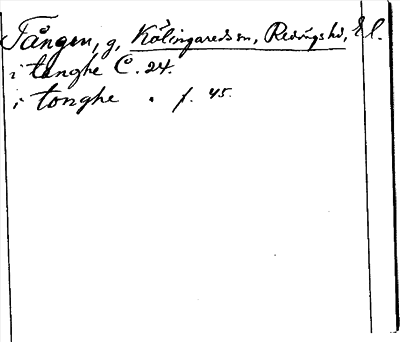 Tången, g, Kölingareds sn, Redvägs hd, El.
i tanghe C. 24.
i tonghe " f. 45.